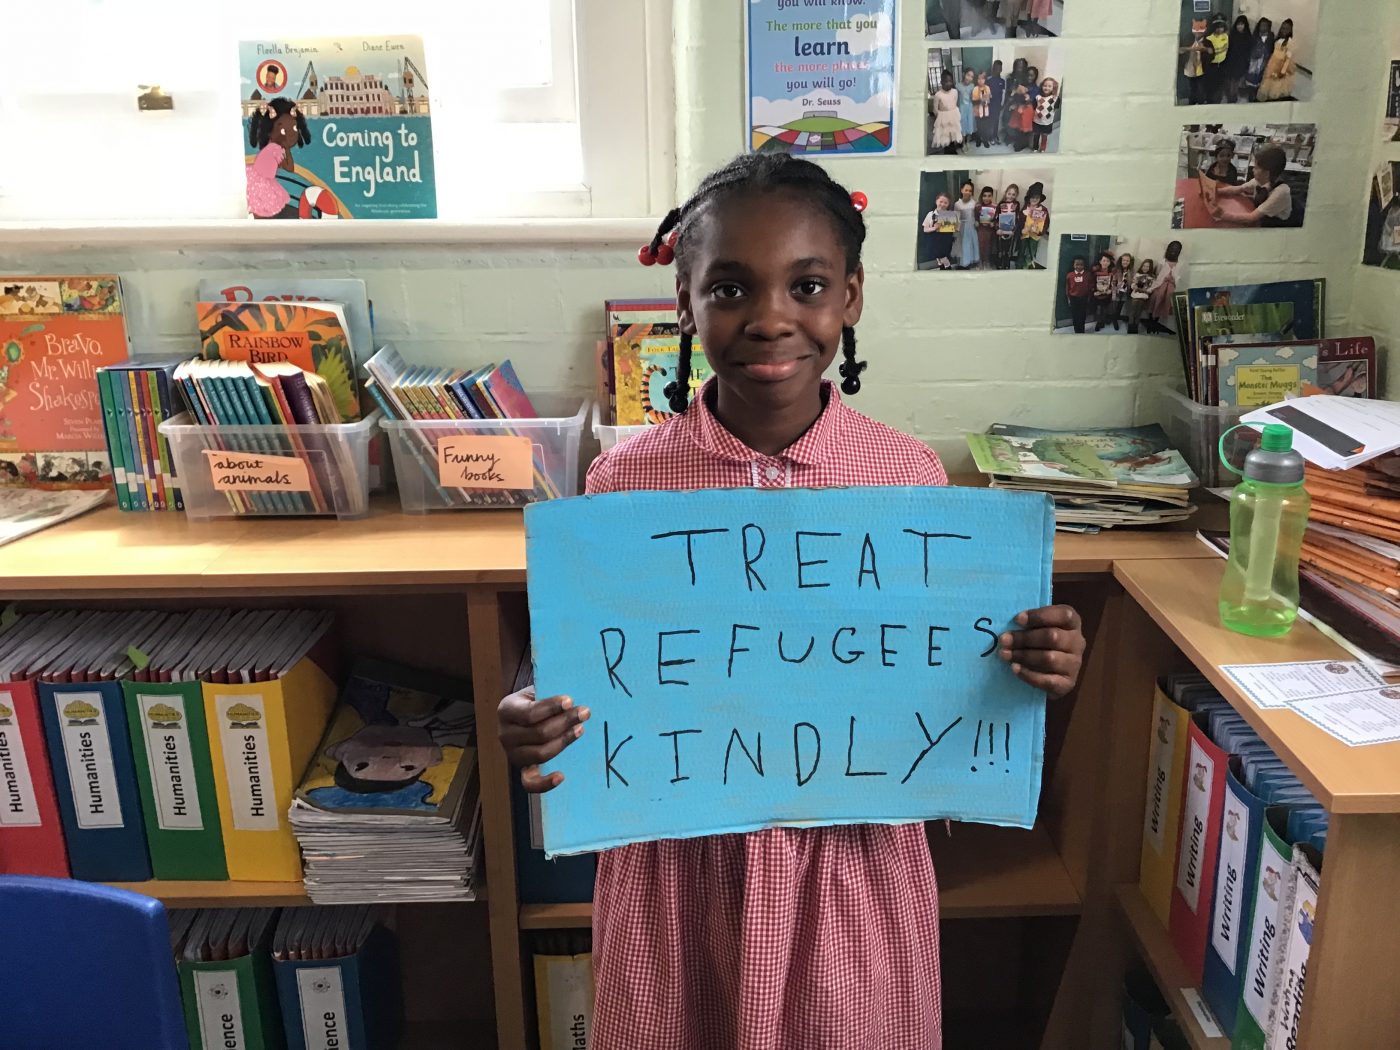 you will know.
The more that you
learn
the more places
you will go!
Dr. Seuss
Floella Benjamin
Diane Ewen
Coming to
England
Bravo,
Mr. William
Shakespeare
MARCIA WILLIAMS
RAINBOW
BIRD
about
animals
Funny
books
Eyewonder
The
Monster Muggs
's Life
TREAT
REFUGEES
KINDLY!!!
Humanities
Humanities
Humanities
Humanities
Writing
Writing
Writing
Writing
Writing
Reading
ience
ience
Maths